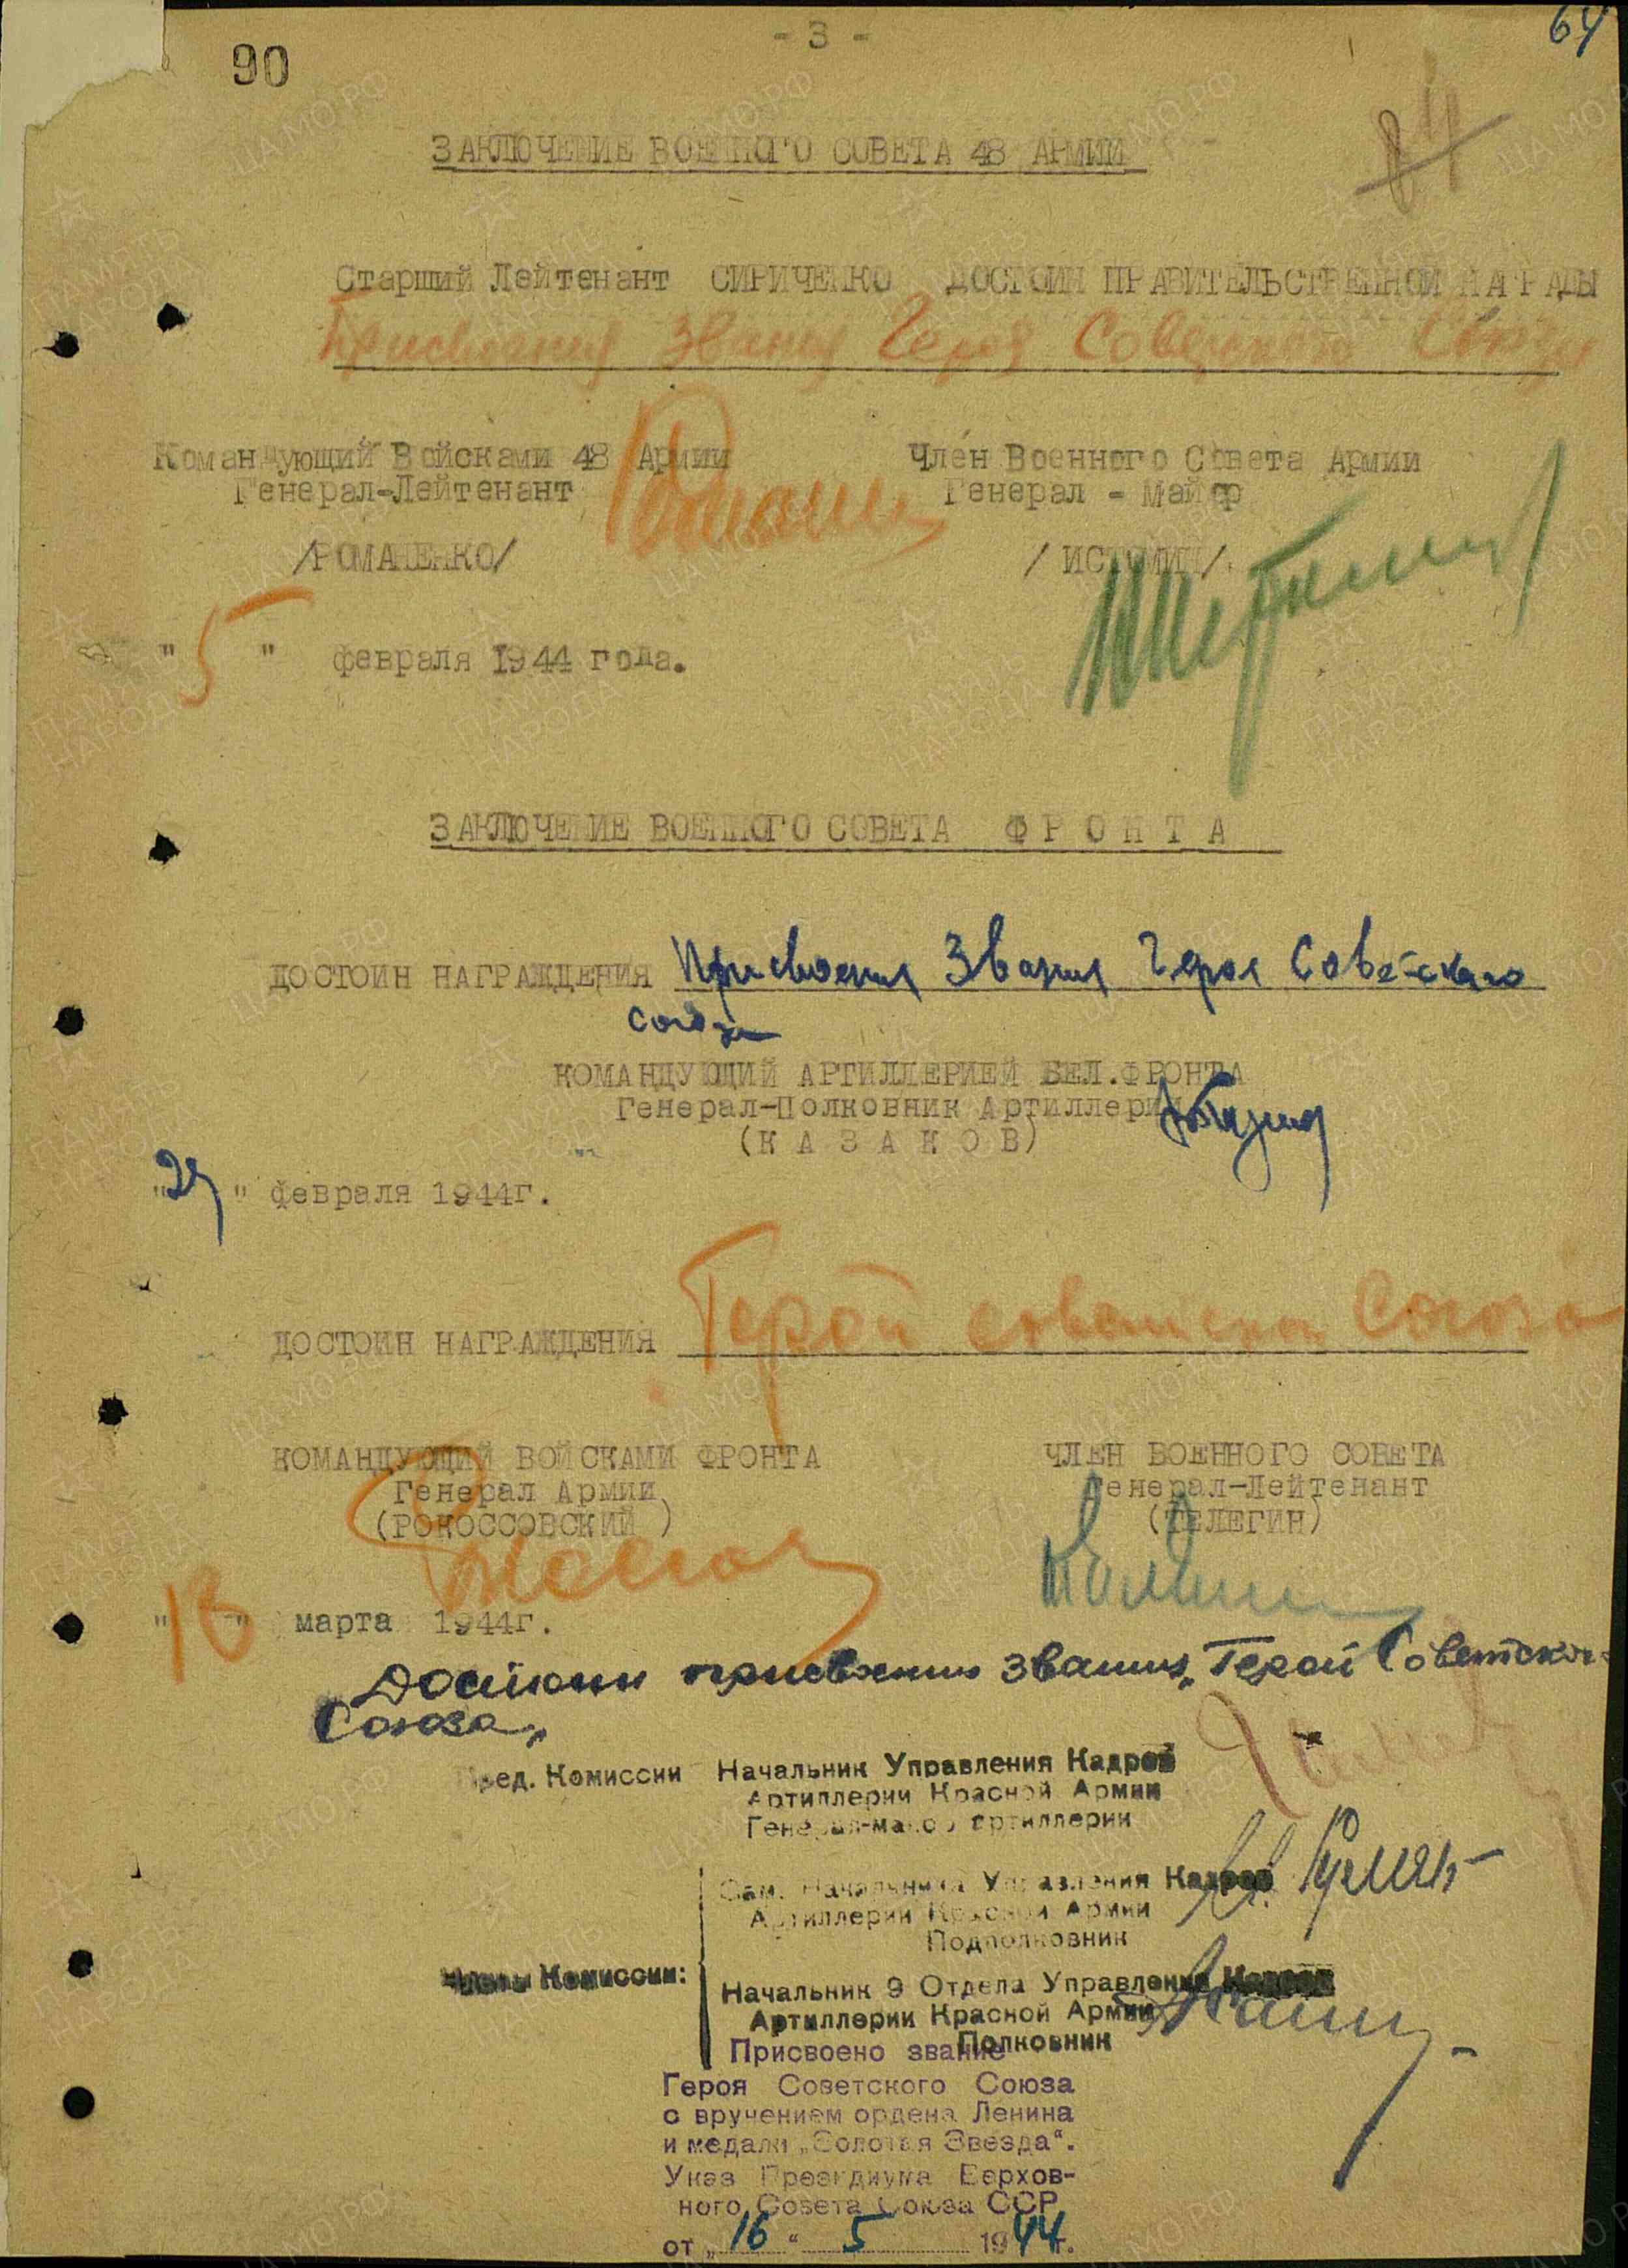 90
- 3 -
64
ЗАКЛЮЧЕНИЕ ВОЕННОГО СОВЕТА 48 АРМИИ
Старший Лейтенант СИРИЧЕНКО ДОСТОИН ПРАВИТЕЛЬСТВЕННОЙ НАГРАДЫ
Присвоения звания Героя Советского Союза
Командующий Войсками 48 Армии
Генерал-Лейтенант
/РОМАНЕНКО/
Член Военного Совета Армии
Генерал - Майор
/ ИСТОМИН /.
" 5 " февраля 1944 года.
ЗАКЛЮЧЕНИЕ ВОЕННОГО СОВЕТА Ф Р О Н Т А
ДОСТОИН НАГРАЖДЕНИЯ Присвоения Звания Героя Советского
Союза
КОМАНДУЮЩИЙ АРТИЛЛЕРИЕЙ БЕЛ.ФРОНТА
Генерал-Полковник Артиллерии
(К А З А К О В)
" " февраля 1944г.
ДОСТОИН НАГРАЖДЕНИЯ Герой Советского Союза
КОМАНДУЮЩИЙ ВОЙСКАМИ ФРОНТА
Генерал Армии
(РОКОССОВСКИЙ )
ЧЛЕН ВОЕННОГО СОВЕТА
Генерал-Лейтенант
(ТЕЛЕГИН)
"18" марта 1944г.
Достоин присвоения звания „Герой Советского
Союза„
Пред. Комиссии
Начальник Управления Кадров
Артиллерии Красной Армии
Генерал-майор артиллерии
Зам. Начальника Управления Кадров
Артиллерии Красной Армии
Подполковник
Члены Комиссии:
Начальник 9 Отдела Управления Кадров
Артиллерии Красной Армии
Полковник
Присвоено звание
Героя Советского Союза
с вручением ордена Ленина
и медали „Золотая Звезда“.
Указ Президиума Верхов-
ного Совета Союза ССР
от „16“ 5 1944г.